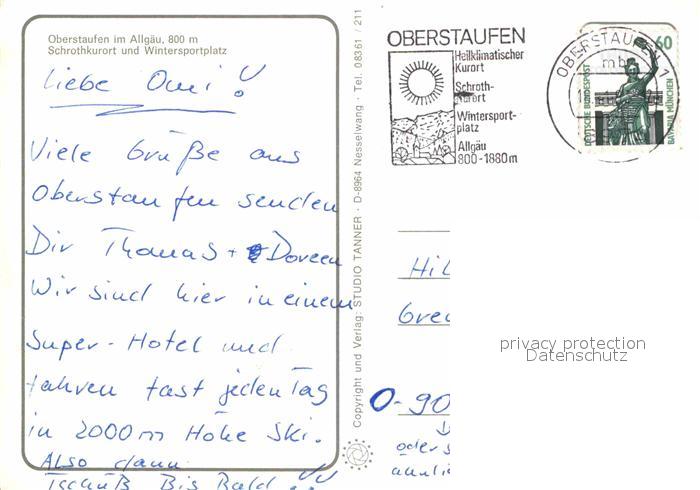 Oberstaufen im Allgäu, 800 m
Schrothkurort und Wintersportplatz
Liebe Omi!
Viele Grüße aus
Oberstaufen senden
Dir Thomas + Doreen
Wir sind hier in einem
Super-Hotel und
fahren fast jeden Tag
in 2000 m Höhe Ski.
Also dann
Tschüß Bis Bald!!
Copyright und Verlag: STUDIO TANNER · D-8964 Nesselwang · Tel. 08361 / 211
OBERSTAUFEN
Heilklimatischer
Kurort
Schroth-
kurort
Wintersport-
platz
Allgäu
800-1880m
OBERSTAUFEN 1
mb
60
DEUTSCHE BUNDESPOST
BAVARIA MÜNCHEN
Hil
O-90
oder
privacy protection
Datenschutz